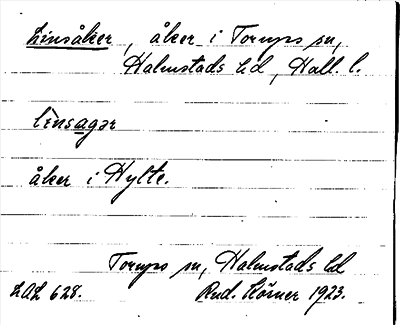 Linsåker, åker i Torups sn,
Halmstads hd, Hall. l.
linsagər
åker i Hylte.
Torups sn, Halmstads hd
LAL 628. Rud. Körner 1923.